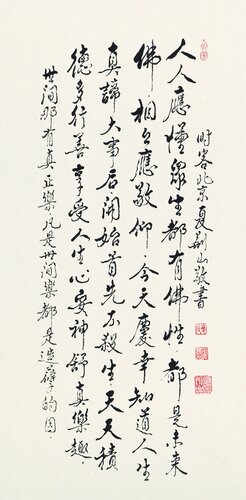 人人應懂眾生都有佛性都是未來
佛相互應敬仰今天慶幸知道人生
真諦大事后開始首先不殺生天天積
德多行善享受人生心安神舒真樂趣
世间那有真正樂凡是世间樂都是造孽的因
时客北京夏荆山敬書